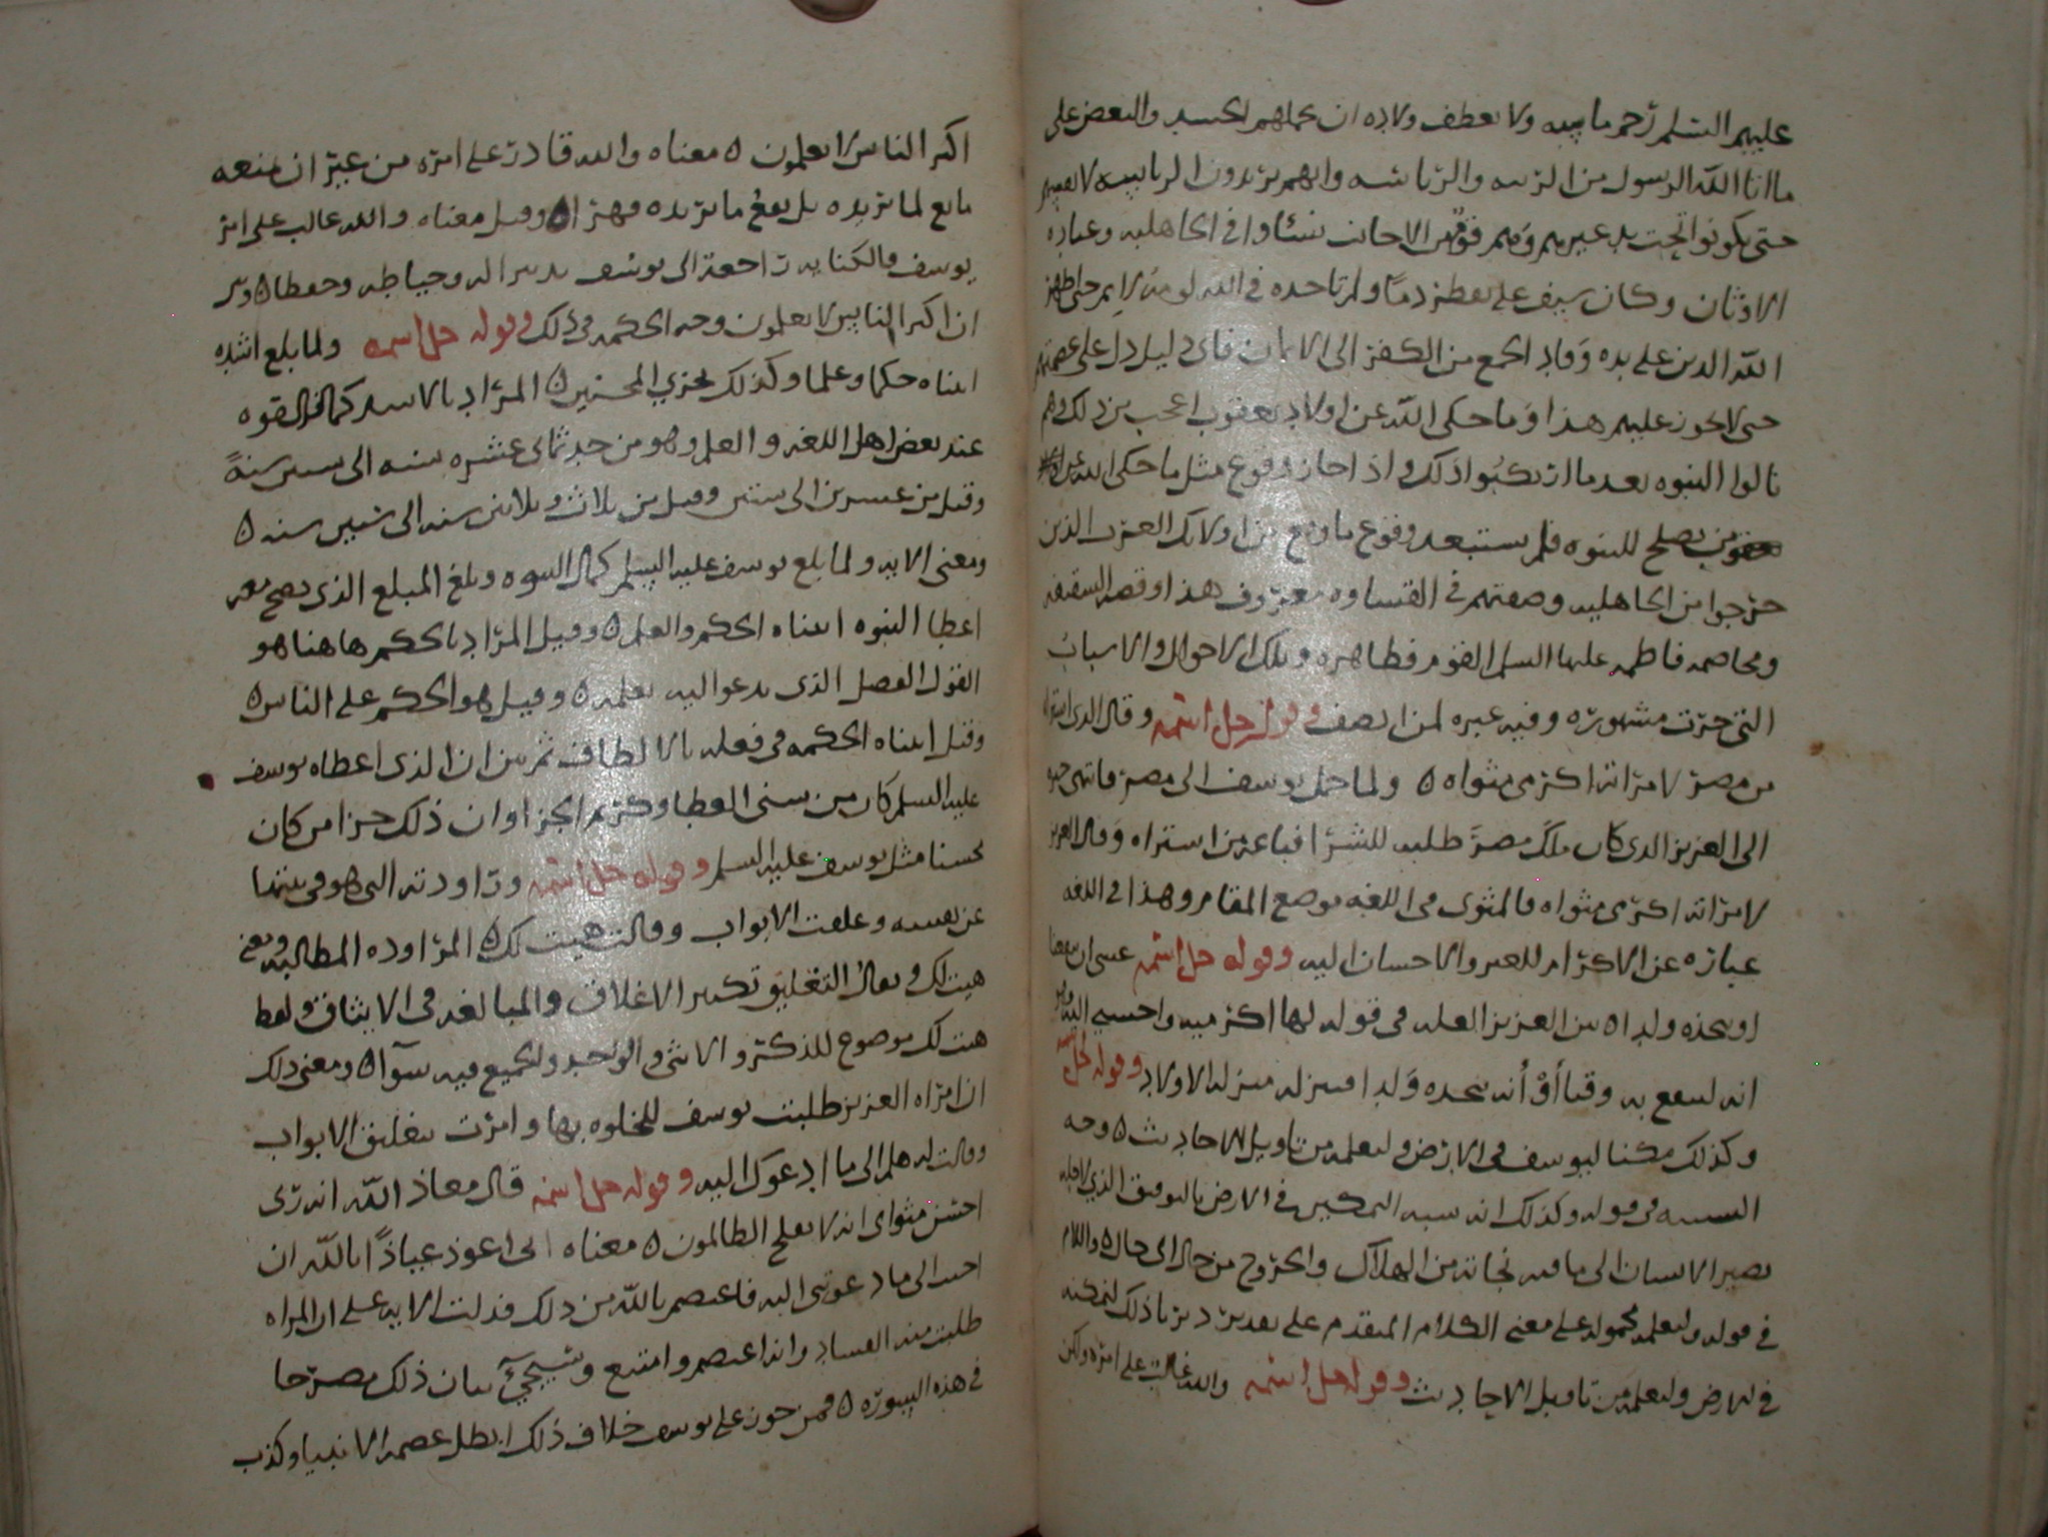 عليهم السلم رحم ماسه ولا تعطف ولاده ان يحملهم الحسد والبغض على
ما اتا الله الرسول من الرتبه والرئاسه وانهم يريدون الرئاسه لانفسهم
حتى يكونوا تحت يد غيرهم ومنهم فوقهم الا من نشاوا في الجاهليه وعباده
الاوثان وكان سيف علي يقطر دما ولم تاخده في الله لومة لايم حتى اظهر
الله الدين على يده وقاد الجمع من الكفر الى الايمان فاي دليل دل على عصمتهم
حتى لا يجوز عليهم هذا وما حكى الله عن اولاد يعقوب اعجب من ذلك وهم
نالوا النبوه بعد ما ارتكبوا ذلك واذا جاز وقوع مثل ما حكى الله
من يصلح للنبوه فلم يستبعد وقوع ما وقع من اولائك العرب الذين
خرجوا من الجاهليه وصفتهم في القساوه معروف هذا وقصه السقيفه
ومخاصمه فاطمه عليها السلم القوم فظاهره وتلك الاحوال والاسباب
التي جرت مشهوره وفيه عبره لمن انصف وقوله جل اسمه وقال الذي اشتراه
من مصر لامراته اكرمي مثواه ولما حمل يوسف الى مصر فانتهى خبره
الى العزيز الذي كان ملك مصر طلبه للشرا فباعه من اشتراه وقال العزيز
لامراته اكرمي مثواه فالمثوى في اللغه موضع المقام وهذا في اللغه
عباره عن الاكرام للغير والاحسان اليه وقوله جل اسمه عسى ان ينفعنا
او نتخذه ولدا بين العزيز العله في قوله لها اكرميه واحسني اليه وهو
انه لينفع به وقتا او انه يتخذه ولدا فينزله منزله الاولاد وقوله جل اسمه
وكذلك مكنا ليوسف في الارض ولنعلمه من تاويل الاحاديث وجه
التشبيه في قوله وكذلك انه شبه التمكين في الارض بالتوفيق الذي
يصير الانسان الى ما فيه نجاته من الهلاك والخروج من حال الى حال واللام
في قوله ولنعلمه محموله على معنى الكلام المتقدم على تقدير دبرنا ذلك لنمكنه
في الارض ولنعلمه من تاويل الاحاديث وقوله جل اسمه والله غالب على امره ولكن
اكثر الناس لا يعلمون معناه والله قادر على امره من غير ان يمنعه
مانع لما يريده بل يقع ما يريده قهرا وقيل معناه والله غالب على امر
يوسف فالكنايه راجعه الى يوسف تدبيرا له وحياطه وحفظا وبين
ان اكثر الناس لا يعلمون وجه الحكمه في ذلك وقوله جل اسمه ولما بلغ اشده
اتيناه حكما وعلما وكذلك نجزي المحسنين المراد بالاشد كمال القوه
عند بعض اهل اللغه والعلم وهو من حد ثماني عشره سنه الى ستين سنة
وقيل من عشرين الى ستين وقيل من ثلاث وثلاثين سنه الى ستين سنه
ومعنى الايه ولما بلغ يوسف عليه السلم كمال النبوه وبلغ المبلغ الذي يصح معه
اعطا النبوه اتيناه الحكم والعلم وقيل المراد بالحكم هاهنا هو
القول الفصل الذي يدعوا اليه بعلمه وقيل هو الحكم على الناس
وقيل اتيناه الحكمه في فعله بالالطاف ثم بين ان الذي اعطاه يوسف
عليه السلم كان من سنى العطا وكريم الجزا وان ذلك جزا من كان
محسنا مثل يوسف عليه السلم وقوله جل اسمه وراودته التي هو في بيتها
عن نفسه وغلقت الابواب وقالت هيت لك المراوده المطالبه ومعنى
هيت لك تعال التغليق تكثير الاغلاق والمبالغه في الايثاق ولفظ
هيت لك موضوع للذكر والانثى والواحد والجميع فيه سوآ ومعنى ذلك
ان امراه العزيز طلبت يوسف للخلوه بها وامرت بتغليق الابواب
وقالت له هلم الى ما ادعوك اليه وقوله جل اسمه قال معاذ الله انه ربي
احسن مثواى انه لا يفلح الظالمون معناه اني اعوذ عياذا بالله ان
اجيب الى ما دعوتني اليه فاعتصم بالله من ذلك فدلت الايه على ان المراه
طلبت منه الفساد وانه اعتصم وامتنع وسيجيء بيان ذلك مصرحا
في هذه السوره فمن جوز على يوسف خلاف ذلك ابطل عصمه الانبيا وكذب